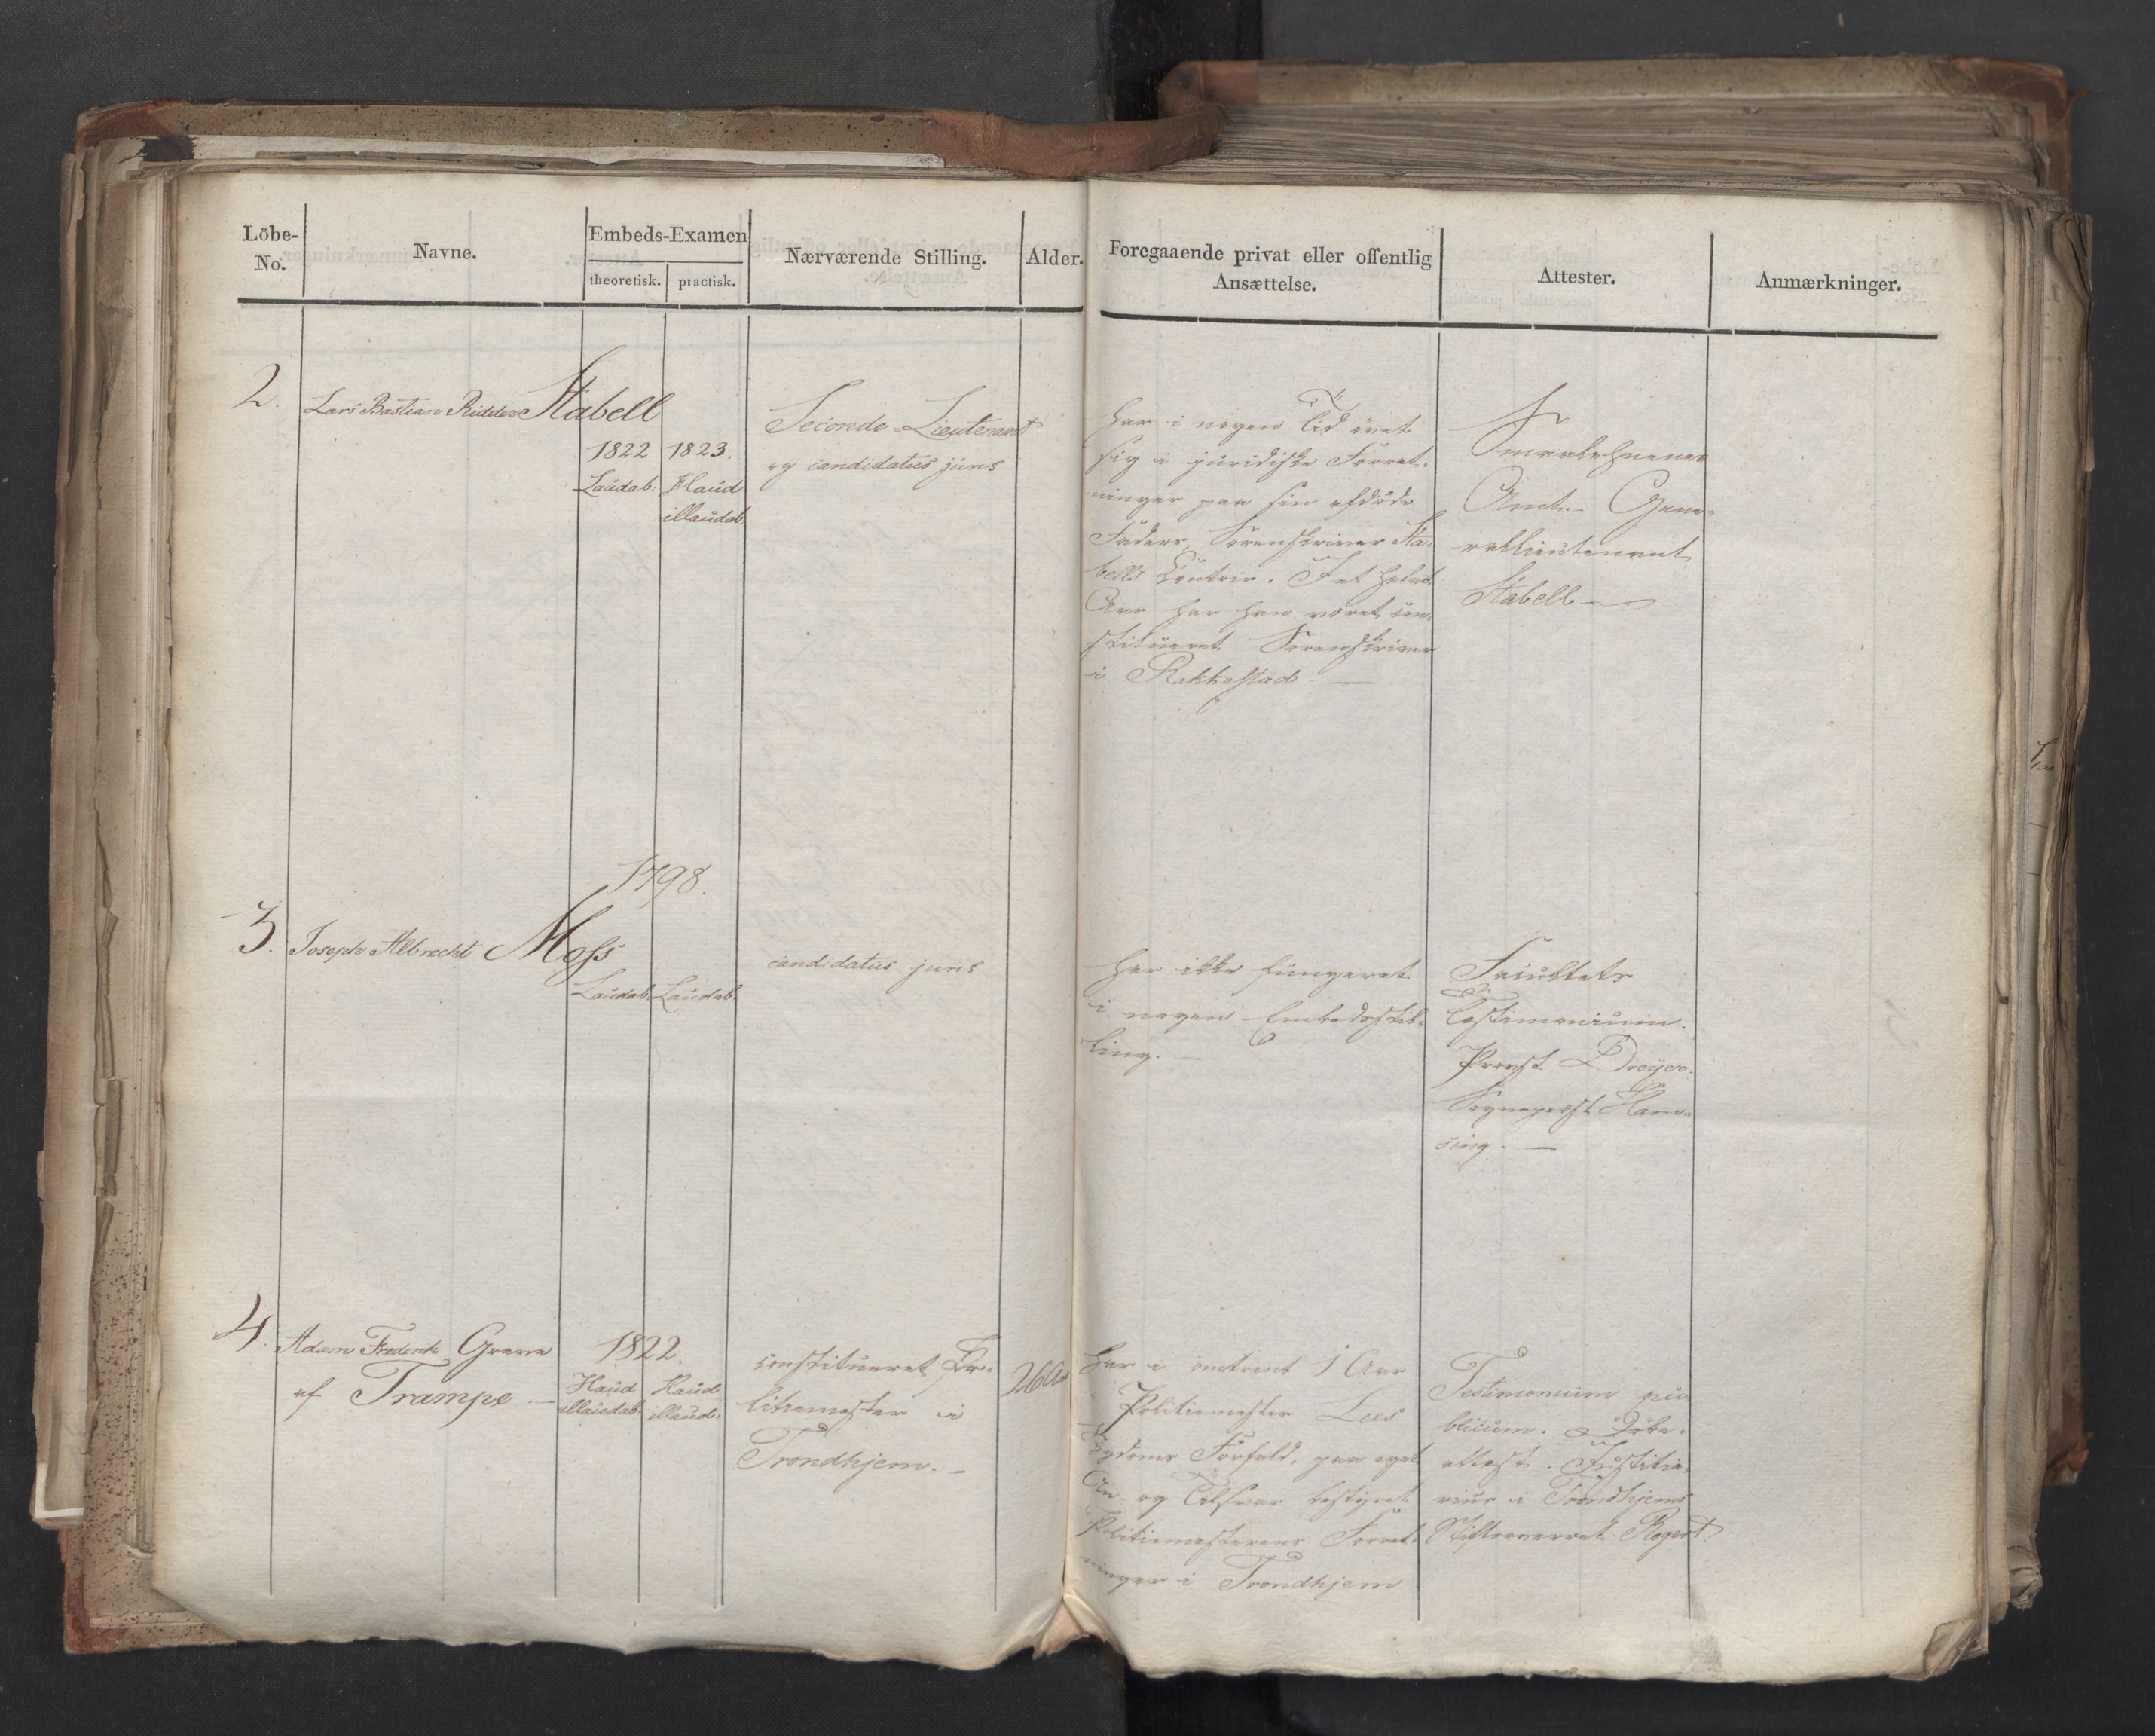 Löbe-
No.
Navne.
Embeds-Examen
theoretisk.
practisk.
Nærværende Stilling.
Alder.
Foregaaende privat eller offentlig
Ansættelse.
Attester.
Anmærkninger.
2.
Lars Bastian Ridder Stabell
1822
Laudab:
1823.
Haud
illaudab.
Seconde-Lieutenant
og candidatus juris
har i nogen Tid øvet
sig i juridiske Forret-
ninger paa sin afdöde
Faders, Sorenskriver Sta-
bells Contoir. I et halvt
Aar har han været con-
stitueret Sorenskriver
i Rakkestad —
Smaalehnenes
Amt. - Gene-
rallieutenant
Stabell —
3.
Joseph Albrecht Moss
1798.
Laudab:
Laudab.
candidatus juris
har ikke fungeret
i nogen Embedsstil-
ling. —
Facultets
Testimonium.
Provst Dreyer.
Sognepræst Ham-
ring. —
4.
Adam Frederik Greve
af Trampe —
1822.
Haud
illaudab:
Haud
illaud:
constitueret Po-
litiemester i
Trondhjem. —
26 Aar
har i omtrent 1 Aar
Politiemester Lies
Sygdoms Forfald, paa eget
An- og Tilsvar bestyret
Politiemesterens Forret-
ninger i Trondhjem
Testimonium pu-
blicum. Døbe-
attest. Justitia-
rius i Trondhjems
Stiftsoverret Rogert